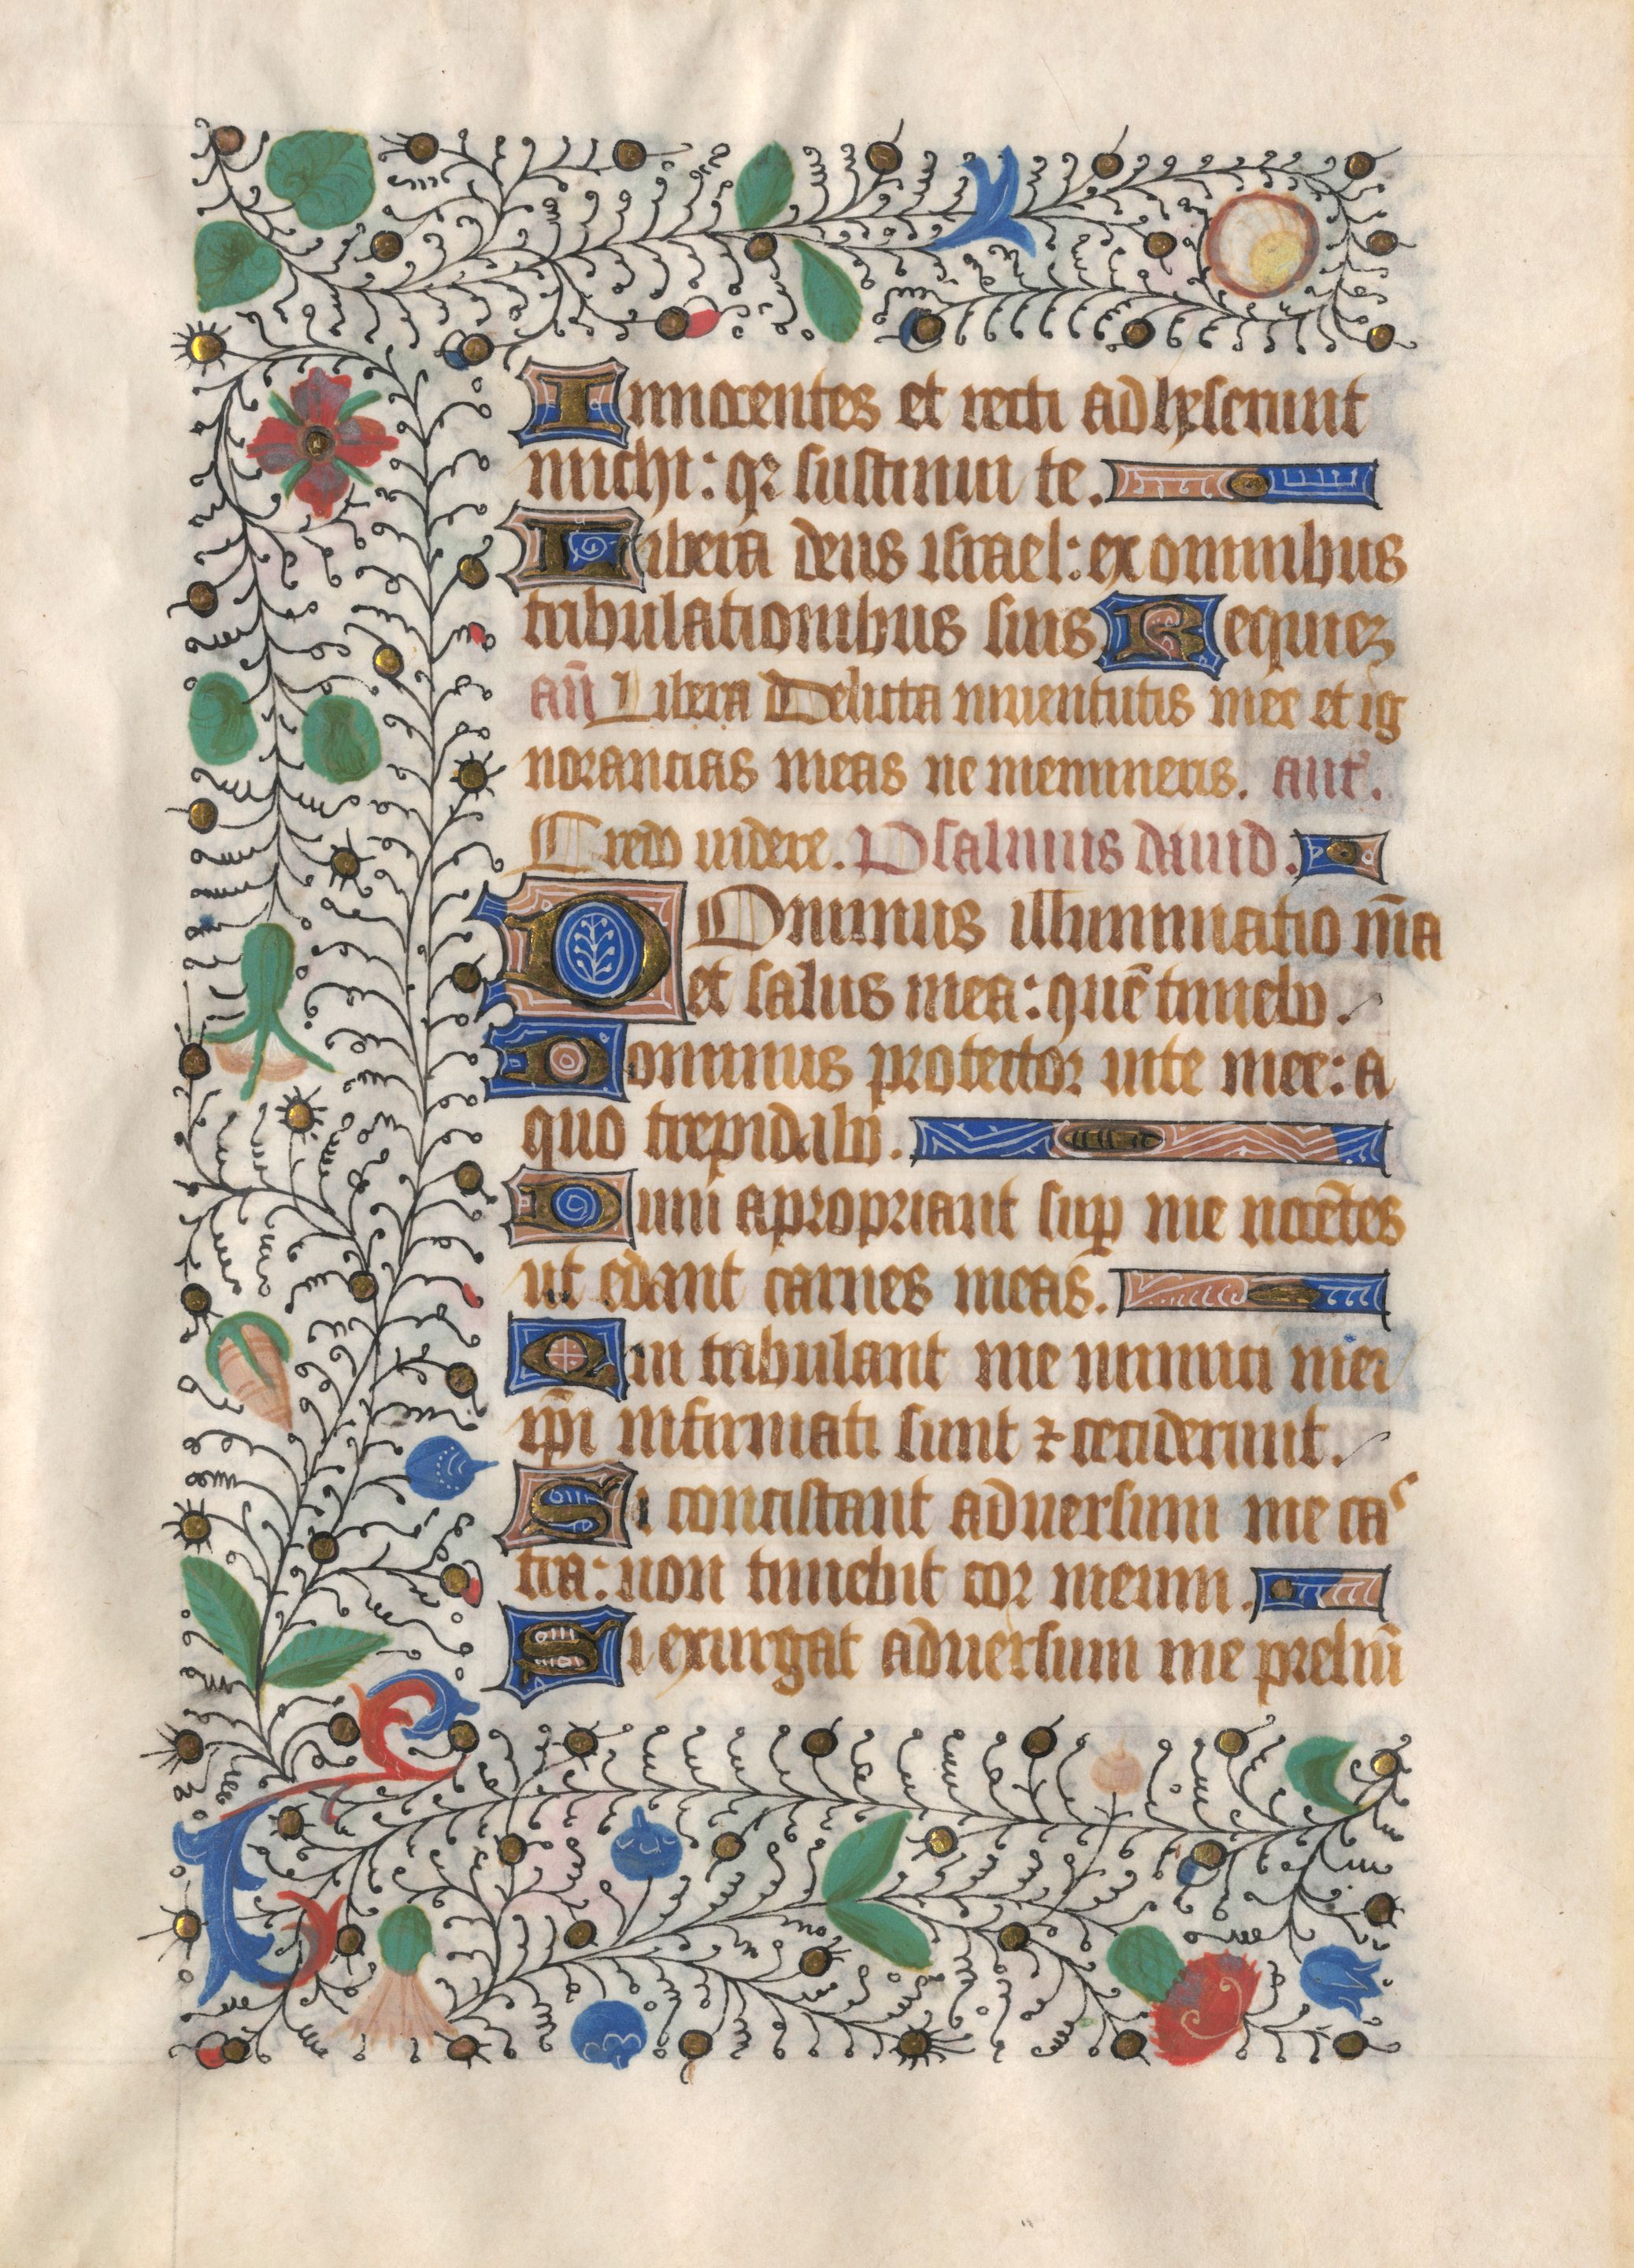 Innocentes et recti adheserunt
michi: qr sustinui te.
Libera deus israel: ex omnibus
tribulationibus suis Requiez
an̄ Libera Delicta iuuentutis mee et ig
norancias meas ne memineris. ant'.
Credo uidere. Psalmus dauid.
DOminus illuminatio m̄a
et salus mea: quē timebo.
Dominus protector uite mee: a
quo trepidabo.
Dum apropriant sup me nocētes
ut edant carnes meas.
Qui tribulant me inimici mei
ip̄i infirmati sunt ⁊ ceciderunt.
Si concistant aduersum me cas
tra: non timebit cor meum.
Si exurgat aduersum me preliū